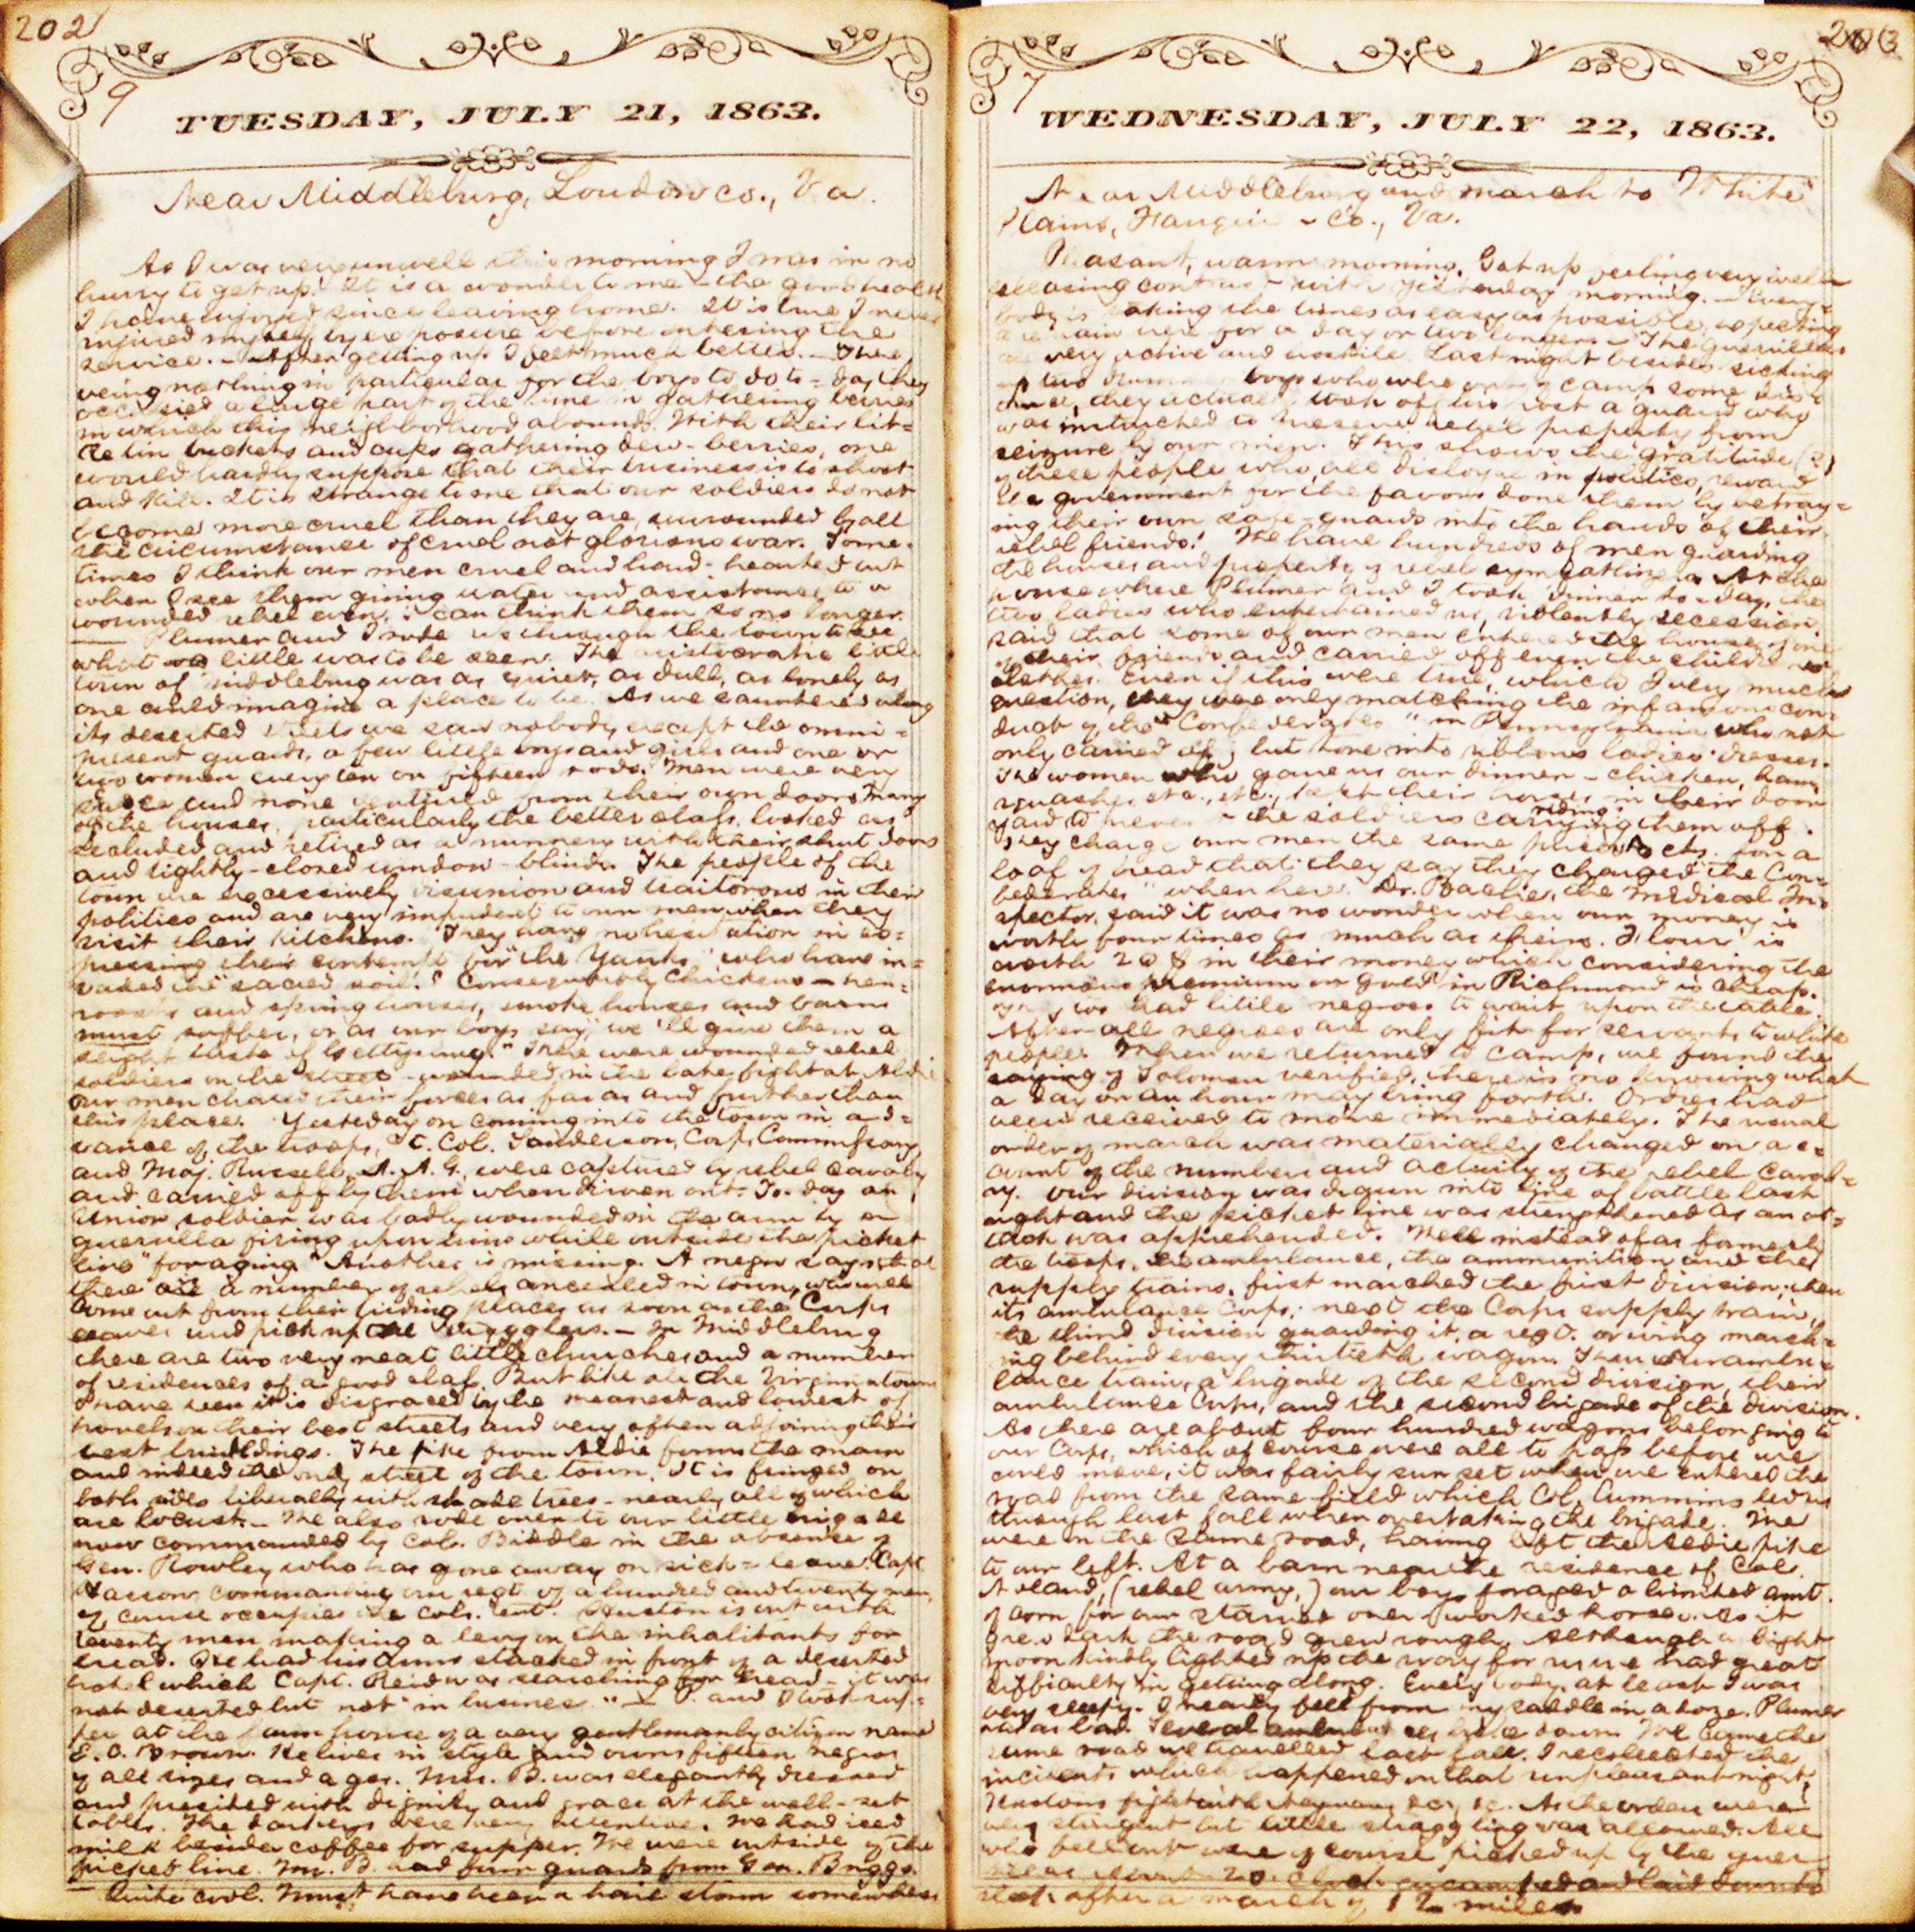 202
9
TUESDAY, JULY 21, 1863.
Near Middleburg, Loudon co., Va.
As I was very unwell this morning I was in no
hurry to get up. It is a wonder to me - the good health
I have enjoyed since leaving home. It is true I never
injured myself by exposure before entering the
service. - After getting up I feel much better. - There
being nothing in particular for the boys to do to-day they
occupied a large part of the time in gathering berries
in which this neighborhood abounds. With their lit=
tle tin buckets and cups gathering dew-berries, one
would hardly suppose that their business is to shoot
and kill. It is strange to me that our soldiers do not
become more cruel than they are, surrounded by all
the circumstance of cruel not glorious war. Some-
times I think our men cruel and hard-hearted but
when I see them giving water and assistance to a
wounded rebel even, I can think them so no longer.
— Plumer and I rode up through the town to see
what little was to be seen. The aristocratic little
town of Middleburg was as quiet, as dull, as lonely as
one could imagine a place to be. As we sauntered along
its deserted streets we saw nobody except the omni=
present guards, a few little boys and girls and one or
two women every ten or fifteen rods. Men were very
scarce and none ventured from their own doors. Many
of the houses, particularly the better class, looked as
secluded and retired as a nunnery with their shut doors
and tightly-closed window-blinds. The people of the
town are excessively disunion and traitorous in their
politics and are very impudent to our men when they
visit their kitchens. They have no hesitation in ex=
pressing their contempt for "the Yanks" who have in=
vaded the "sacred soil." Consequently Chickens - hen=
roosts and spring houses, smoke houses and barns
must suffer, or as our boys say, "we'll give them a
slight taste of Gettysburg." There were wounded rebel
soldiers in the street - wounded in the late fight at Aldie
Our men chased their forces as far as and further than
this place. Yesterday on coming into the town in ad=
vance of the troops, Lt. Col. Sanderson, Corps Commissary,
and Maj. Russell, A. A. G., were captured by rebel cavalry
and carried off by them when driven out. To-day an
Union soldier was badly wounded in the arm by a
guerrilla firing upon him while outside the picket
line "foraging." Another is missing. A negro says that
there are a number of rebels concealed in town, who will
come out from their hiding places as soon as the Corps
leaves and pick up the stragglers. - In Middleburg
there are two very neat little churches and a number
of residences of a good class. But like all the Virginia towns
I have seen it is disgraced by the meanest and lowest of
hovels on their best streets and very often adjoining their
best buildings. The pike from Aldie forms the main
and indeed the only street of the town. It is fringed on
both sides liberally with shade trees - nearly all of which
are locust. - We also rode over to our little brigade
now commanded by Col. Biddle in the absence of
Gen. Rowley who has gone away on sick-leave. Capt.
commanding our regt. of a hundred and twenty men,
of course occupies the Cols. tent. Huston is out with
twenty men making a levy on the inhabitants for
bread. He had his arms stacked in front of a deserted
hotel which Capt. Reid was searching for bread - it was
not deserted but not "in business." — P. and I took sup=
per at the farm house of a very gentlemanly citizen named
E. O. Brown. He lives in style and owns fifteen negroes
of all sizes and ages. Mrs. B. was elegantly dressed
and presided with dignity and grace at the well-set
table. The darkeys were very attentive. We had iced
milk besides coffee for supper. We were outside of the
picket line. Mr. B. had four guards from Gen. Briggs.
— Quite cool. Must have been a hail storm somewhere
203
7
WEDNESDAY, JULY 22, 1863.
Near Middleburg and march to White
Plains, Fauquier Co., Va.
Pleasant, warm morning. Got up feeling very well -
pleasing contrast with yesterday morning. - Every=
body is taking the times as easy as possible, expecting
to remain here for a day or two longer. - The guerrillas
are very active and hostile. Last night besides picking
up two drummer boys who were out of camp some dis=
tance, they actually took off his post a guard who
was instructed to preserve rebel property from
seizure by our men. This shows the gratitude (?)
of these people who, all disloyal in politics, reward
the government for the favors done them by betray=
ing their own safe-guards into the hands of their
rebel friends! We have hundreds of men guarding
the houses and property of rebel sympathizers. At the
house where Plumer and I took dinner to-day, the
two ladies who entertained us, violently secession,
said that some of our men entered the house of one
of their friends and carried off even the children's
clothes. Even if this were true, which I very much
question, they were only matching the infamous con=
duct of the "Confederates" in Pennsylvania who not
only carried off, but tore into ribbons ladies' dresses.
The women who gave us our dinner - chicken, ham,
squashes etc., etc., kept their horses in their door
yard to prevent the soldiers carrying them off.
riding
They charge our men the same price cts. for a
loaf of bread that they say they charged the "Con=
federates" when here. Dr. Bache, the Medical In=
spector, said it was no wonder when our money is
worth four times as much as theirs. Flour is
worth 20 $ in their money which considering the
enormous premium on gold in Richmond is cheap.
They too had little negroes to wait upon the table.
After all negroes are only fit for servants to white
people. When we returned to camp, we found the
saying of Solomon verified, there is no knowing what
a day or an hour may bring forth. Orders had
been received to move immediately. The usual
order of march was materially changed on ac=
count of the numbers and activity of the rebel caval=
ry. Our division was drawn into line of battle last
night and the picket line was strengthened as an at=
tack was apprehended. Well instead of as formerly
the troops, the ambulance, the ammunition and the
supply trains, first marched the first division; then
its ambulance Corps; next the Corps supply train,
the third division guarding it, a regt. or wing march=
ing behind every thirtieth wagon. Then our ambu=
lance train, a brigade of the second division, their
ambulance Corps, and the second brigade of the division.
As there are about four hundred wagons belonging to
our Corps, which of course were all to pass before we
could move, it was fairly sun set when we entered the
road from the same field which Col. Cummins led us
through last fall when overtaking the brigade. We
were on the same road, having left the Aldie pike
to our left. At a barn near the residence of Col.
Noland, (rebel army,) our boys foraged a limited amt.
of corn for our starved over worked horses. As it
grew dark the road grew rough. Although a bright
moon kindly lighted up the way for us we had great
difficulty in getting along. Every body, at least I was
very sleepy. I nearly fell from my saddle in a doze. Plumer
was as bad. Several ambulances broke down. We came the
same road we travelled last fall. I recollected the
incidents which happened on that unpleasant night,
Hustons fight with &c., &c. As the orders were
very stringent but little straggling was allowed. All
who fell out were of course picked up by the guer=
clock encamped and laid down to
sleep after a march of 12 miles